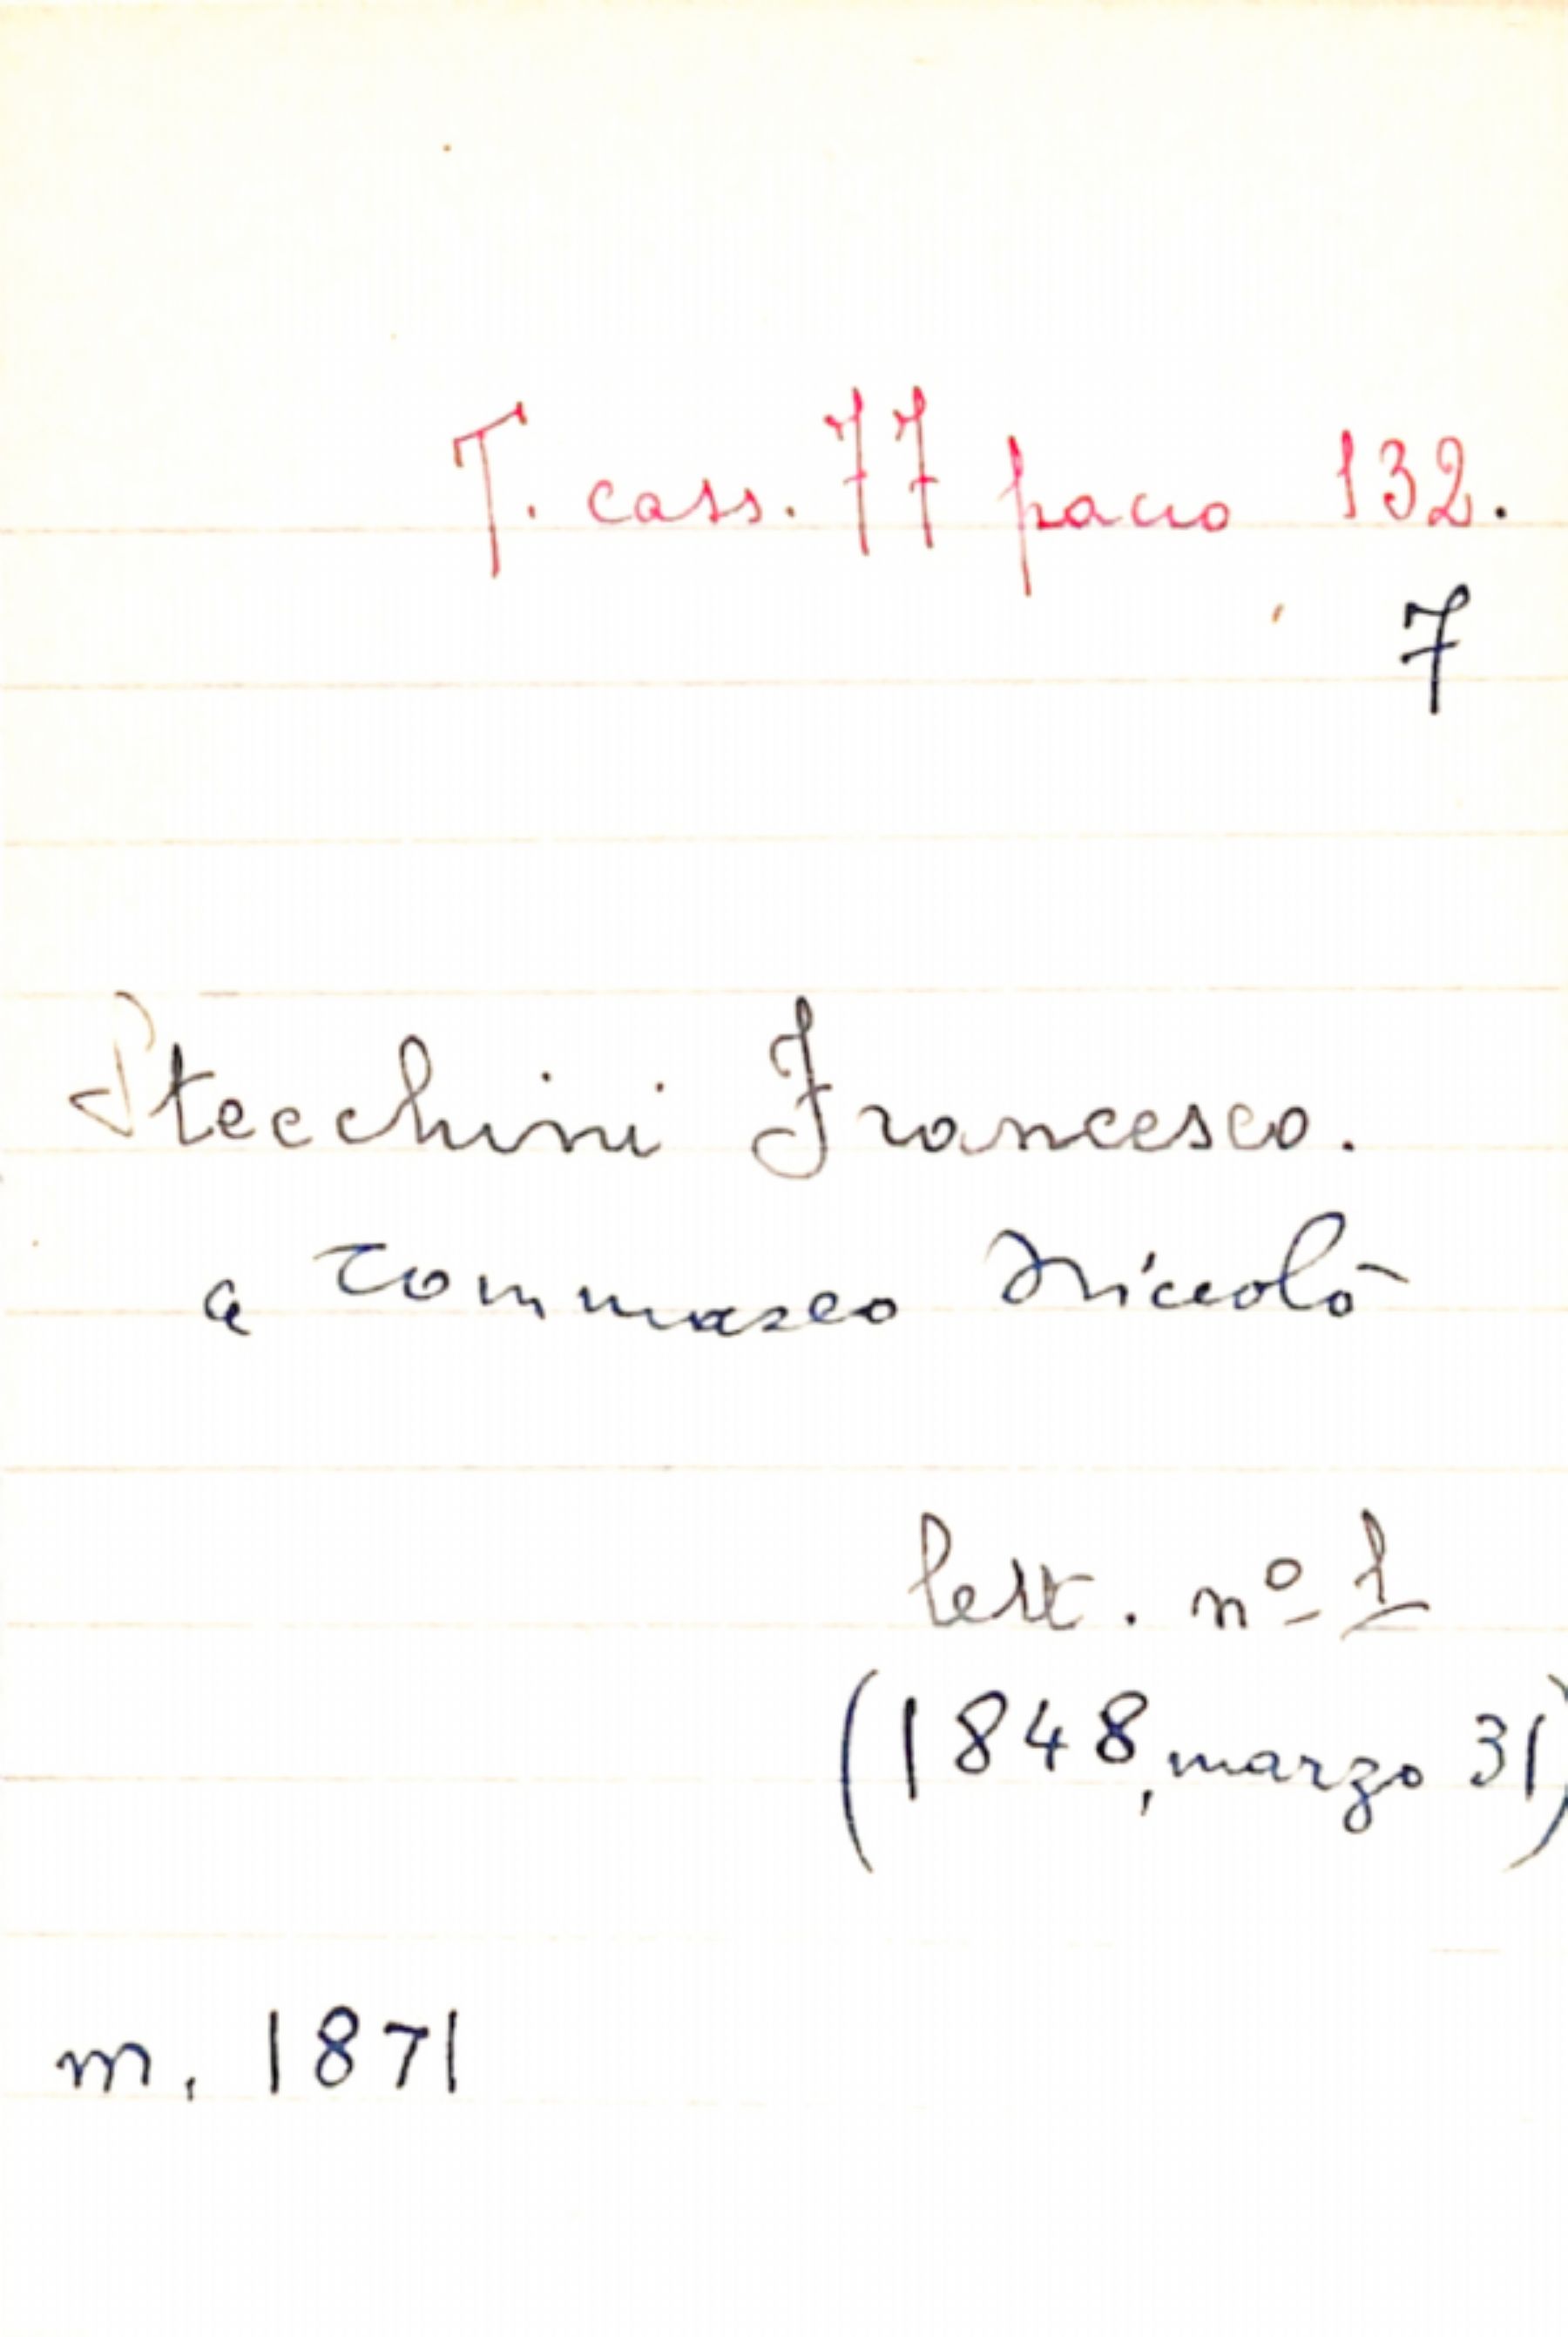 T. cass. 77 pacco 132.
7
Stecchini Francesco.
a Tommaseo Niccolò
lett. nº 1
(1848, marzo 31)
m. 1871